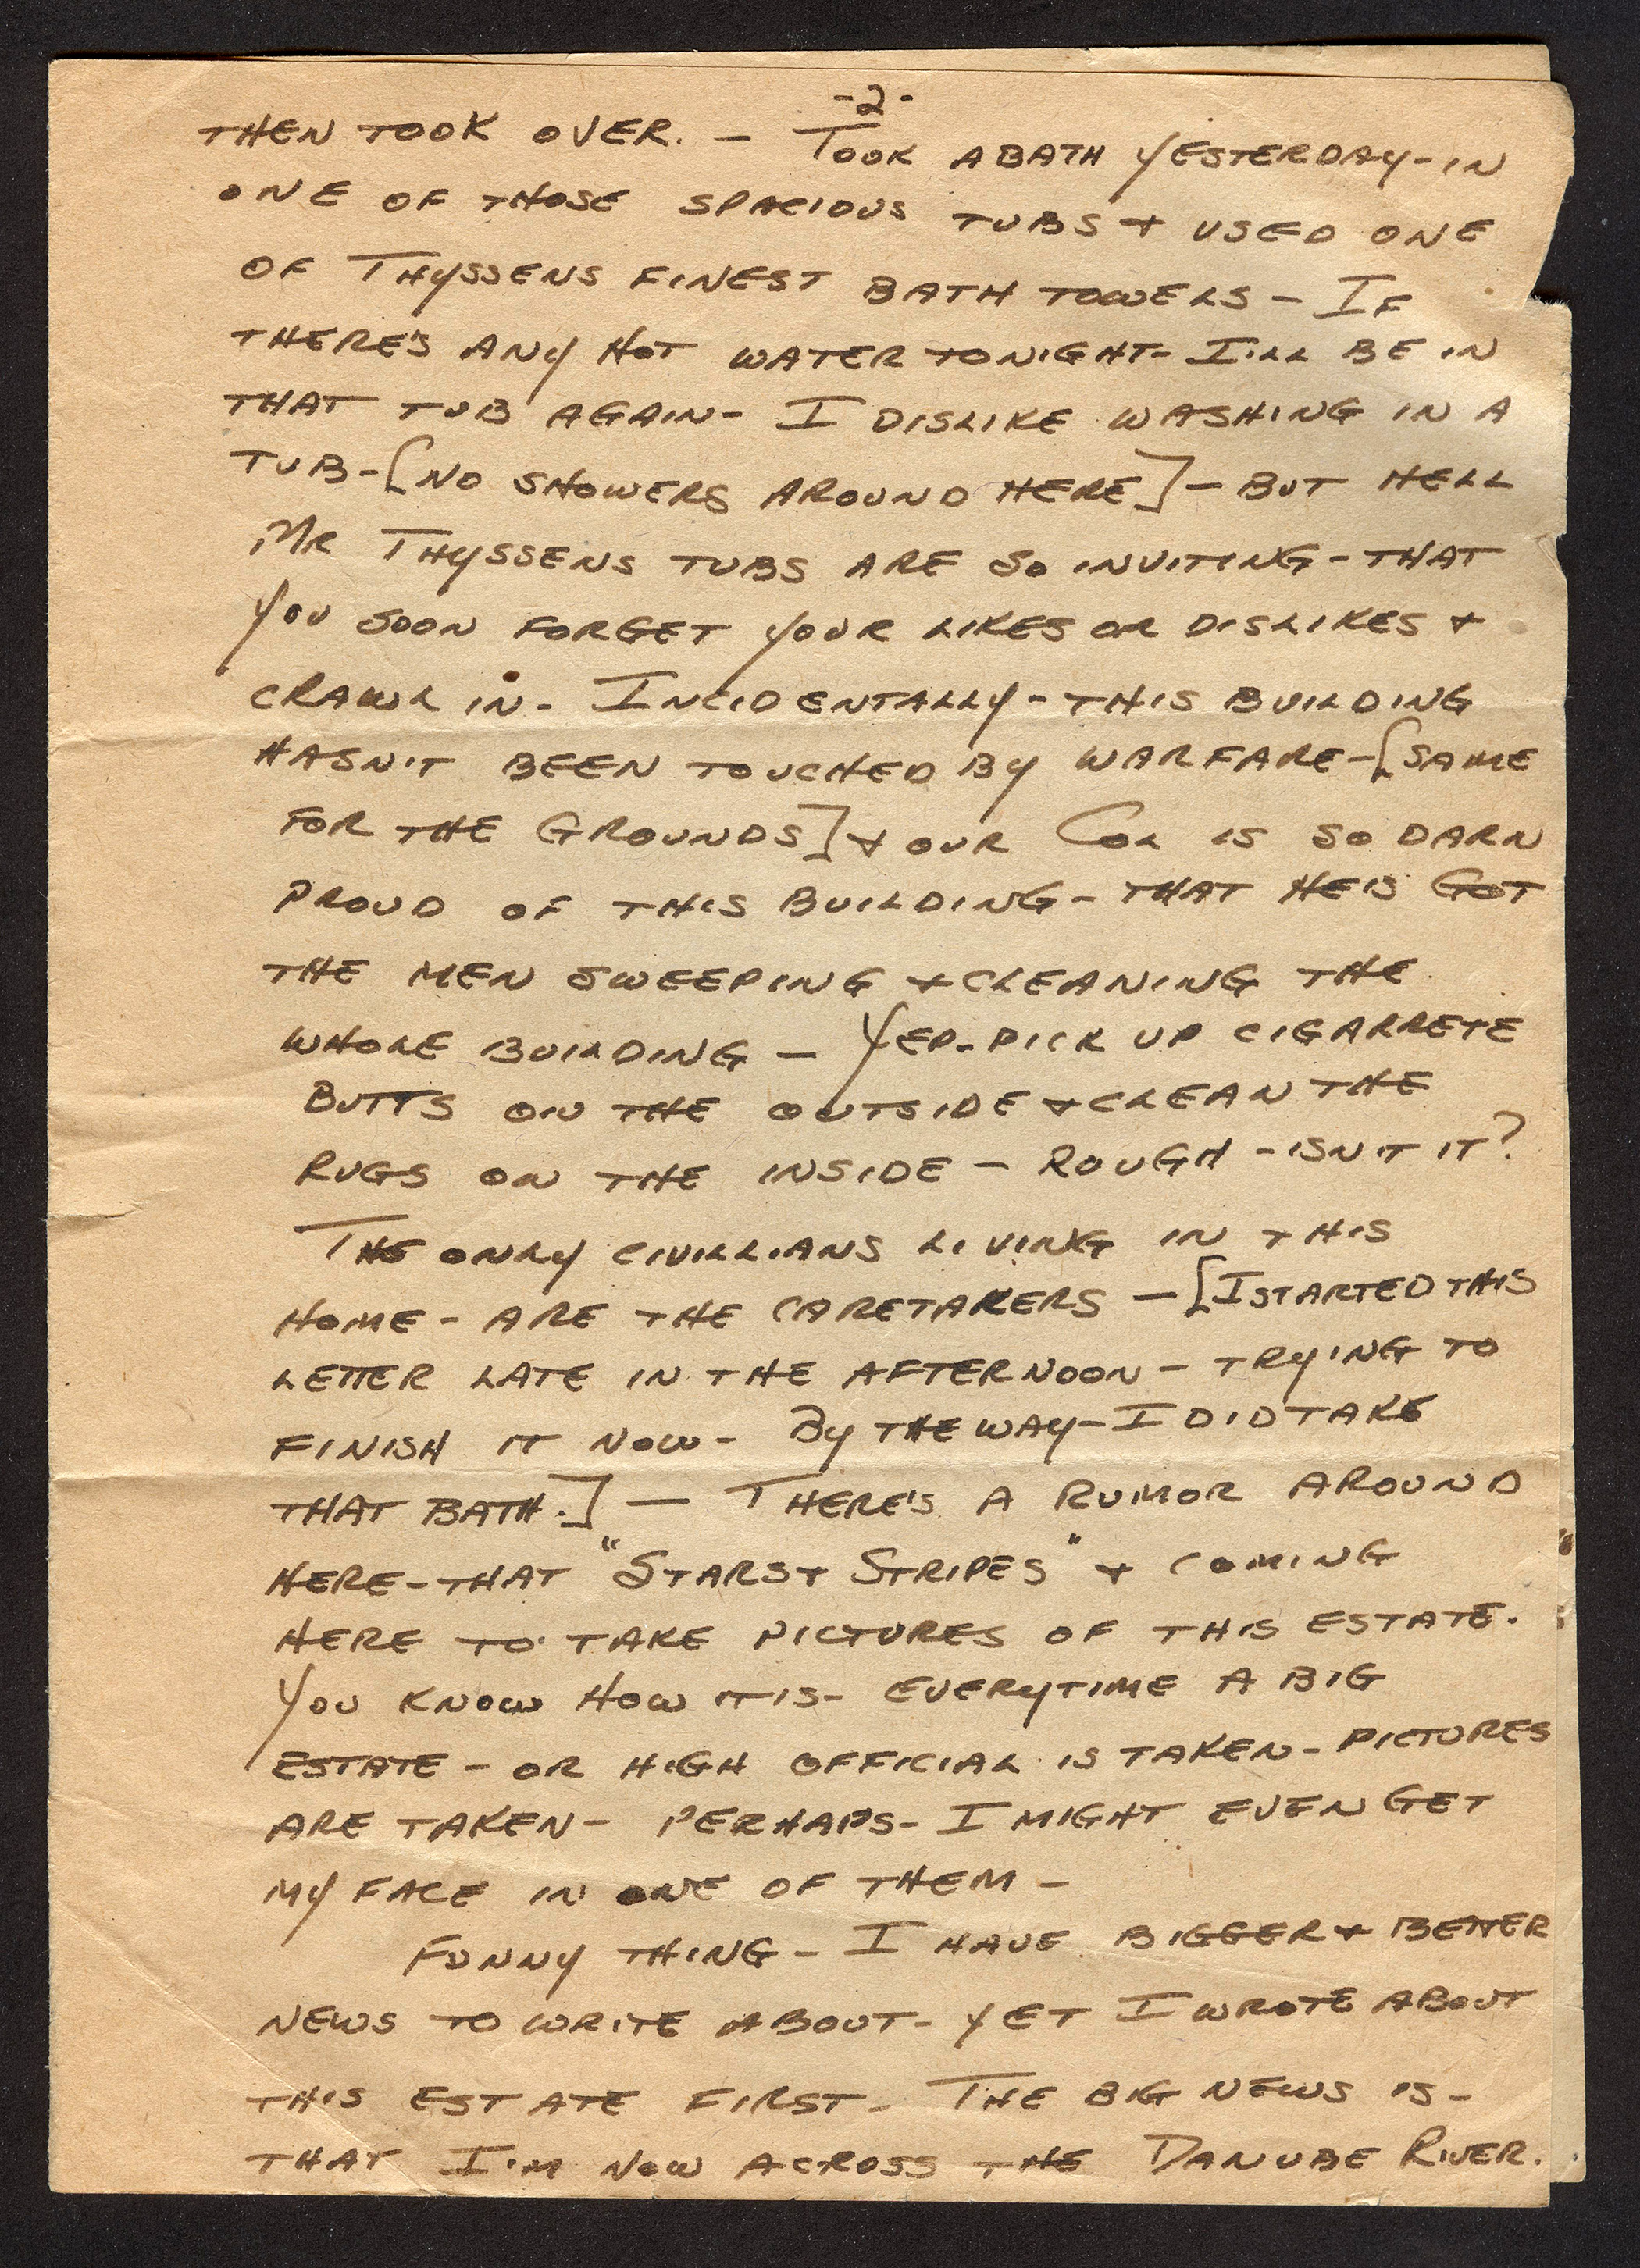 -2-
THEN TOOK OVER. — TOOK A BATH YESTERDAY - IN
ONE OF THOSE SPACIOUS TUBS + USED ONE
OF THYSSENS FINEST BATH TOWELS - IF
THERE'S ANY HOT WATER TONIGHT - I'LL BE IN
THAT TUB AGAIN - I DISLIKE WASHING IN A
TUB - [NO SHOWERS AROUND HERE] - BUT HELL
MR THYSSENS TUBS ARE SO INVITING - THAT
YOU SOON FORGET YOUR LIKES OR DISLIKES +
CRAWL IN - INCIDENTALLY - THIS BUILDING
HASN'T BEEN TOUCHED BY WARFARE - [SAME
FOR THE GROUNDS] + OUR COL IS SO DARN
PROUD OF THIS BUILDING - THAT HE IS GOT
THE MEN SWEEPING + CLEANING THE
WHOLE BUILDING — YEP - PICK UP CIGARRETE
BUTTS ON THE OUTSIDE + CLEAN THE
RUGS ON THE INSIDE - ROUGH - ISN'T IT?
THE ONLY CIVILLIANS LIVING IN THIS
HOME - ARE THE CARETAKERS — [I STARTED THIS
LETTER LATE IN THE AFTERNOON - TRYING TO
FINISH IT NOW - BY THE WAY - I DID TAKE
THAT BATH.] — THERE'S A RUMOR AROUND
HERE - THAT "STARS + STRIPES" + COMING
HERE TO TAKE PICTURES OF THIS ESTATE.
YOU KNOW HOW IT IS - EVERYTIME A BIG
ESTATE - OR HIGH OFFICIAL IS TAKEN - PICTURES
ARE TAKEN - PERHAPS - I MIGHT EVEN GET
MY FACE IN ONE OF THEM -
FUNNY THING - I HAVE BIGGER + BETTER
NEWS TO WRITE ABOUT - YET I WROTE ABOUT
THIS ESTATE FIRST - THE BIG NEWS IS -
THAT I'M NOW ACROSS THE DANUBE RIVER.